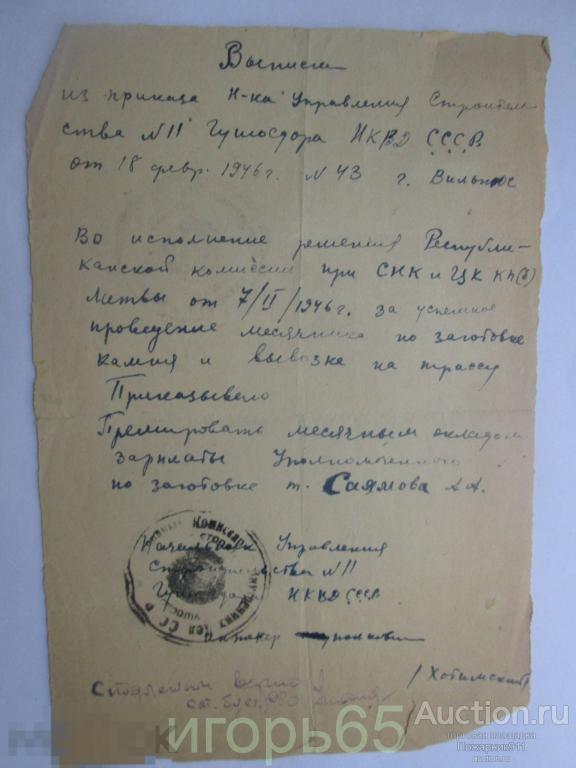 Выписка
из приказа Н-ка Управления Строитель
ства N 11 Гушосдора НКВД СССР
от 18 февр. 1946 г. N 43 г. Вильнюс
Во исполнение решения Республи-
канской комиссии при СНК и ЦК КП(б)
Литвы от 7/II/1946 г. за успешное
проведение месячника по заготовке
камня и вывозке на трассу
Приказываю
Премировать месячным окладом
зарплаты Уполномоченного
по заготовке т. Саямова А А.
Начальник Управления
Строительства N 11
Гушосдора НКВД СССР
инженер
/Хотимский/
С подлинным верно
игорь65
Auction.ru
торговая площадка
Пожарник911
auction.ru